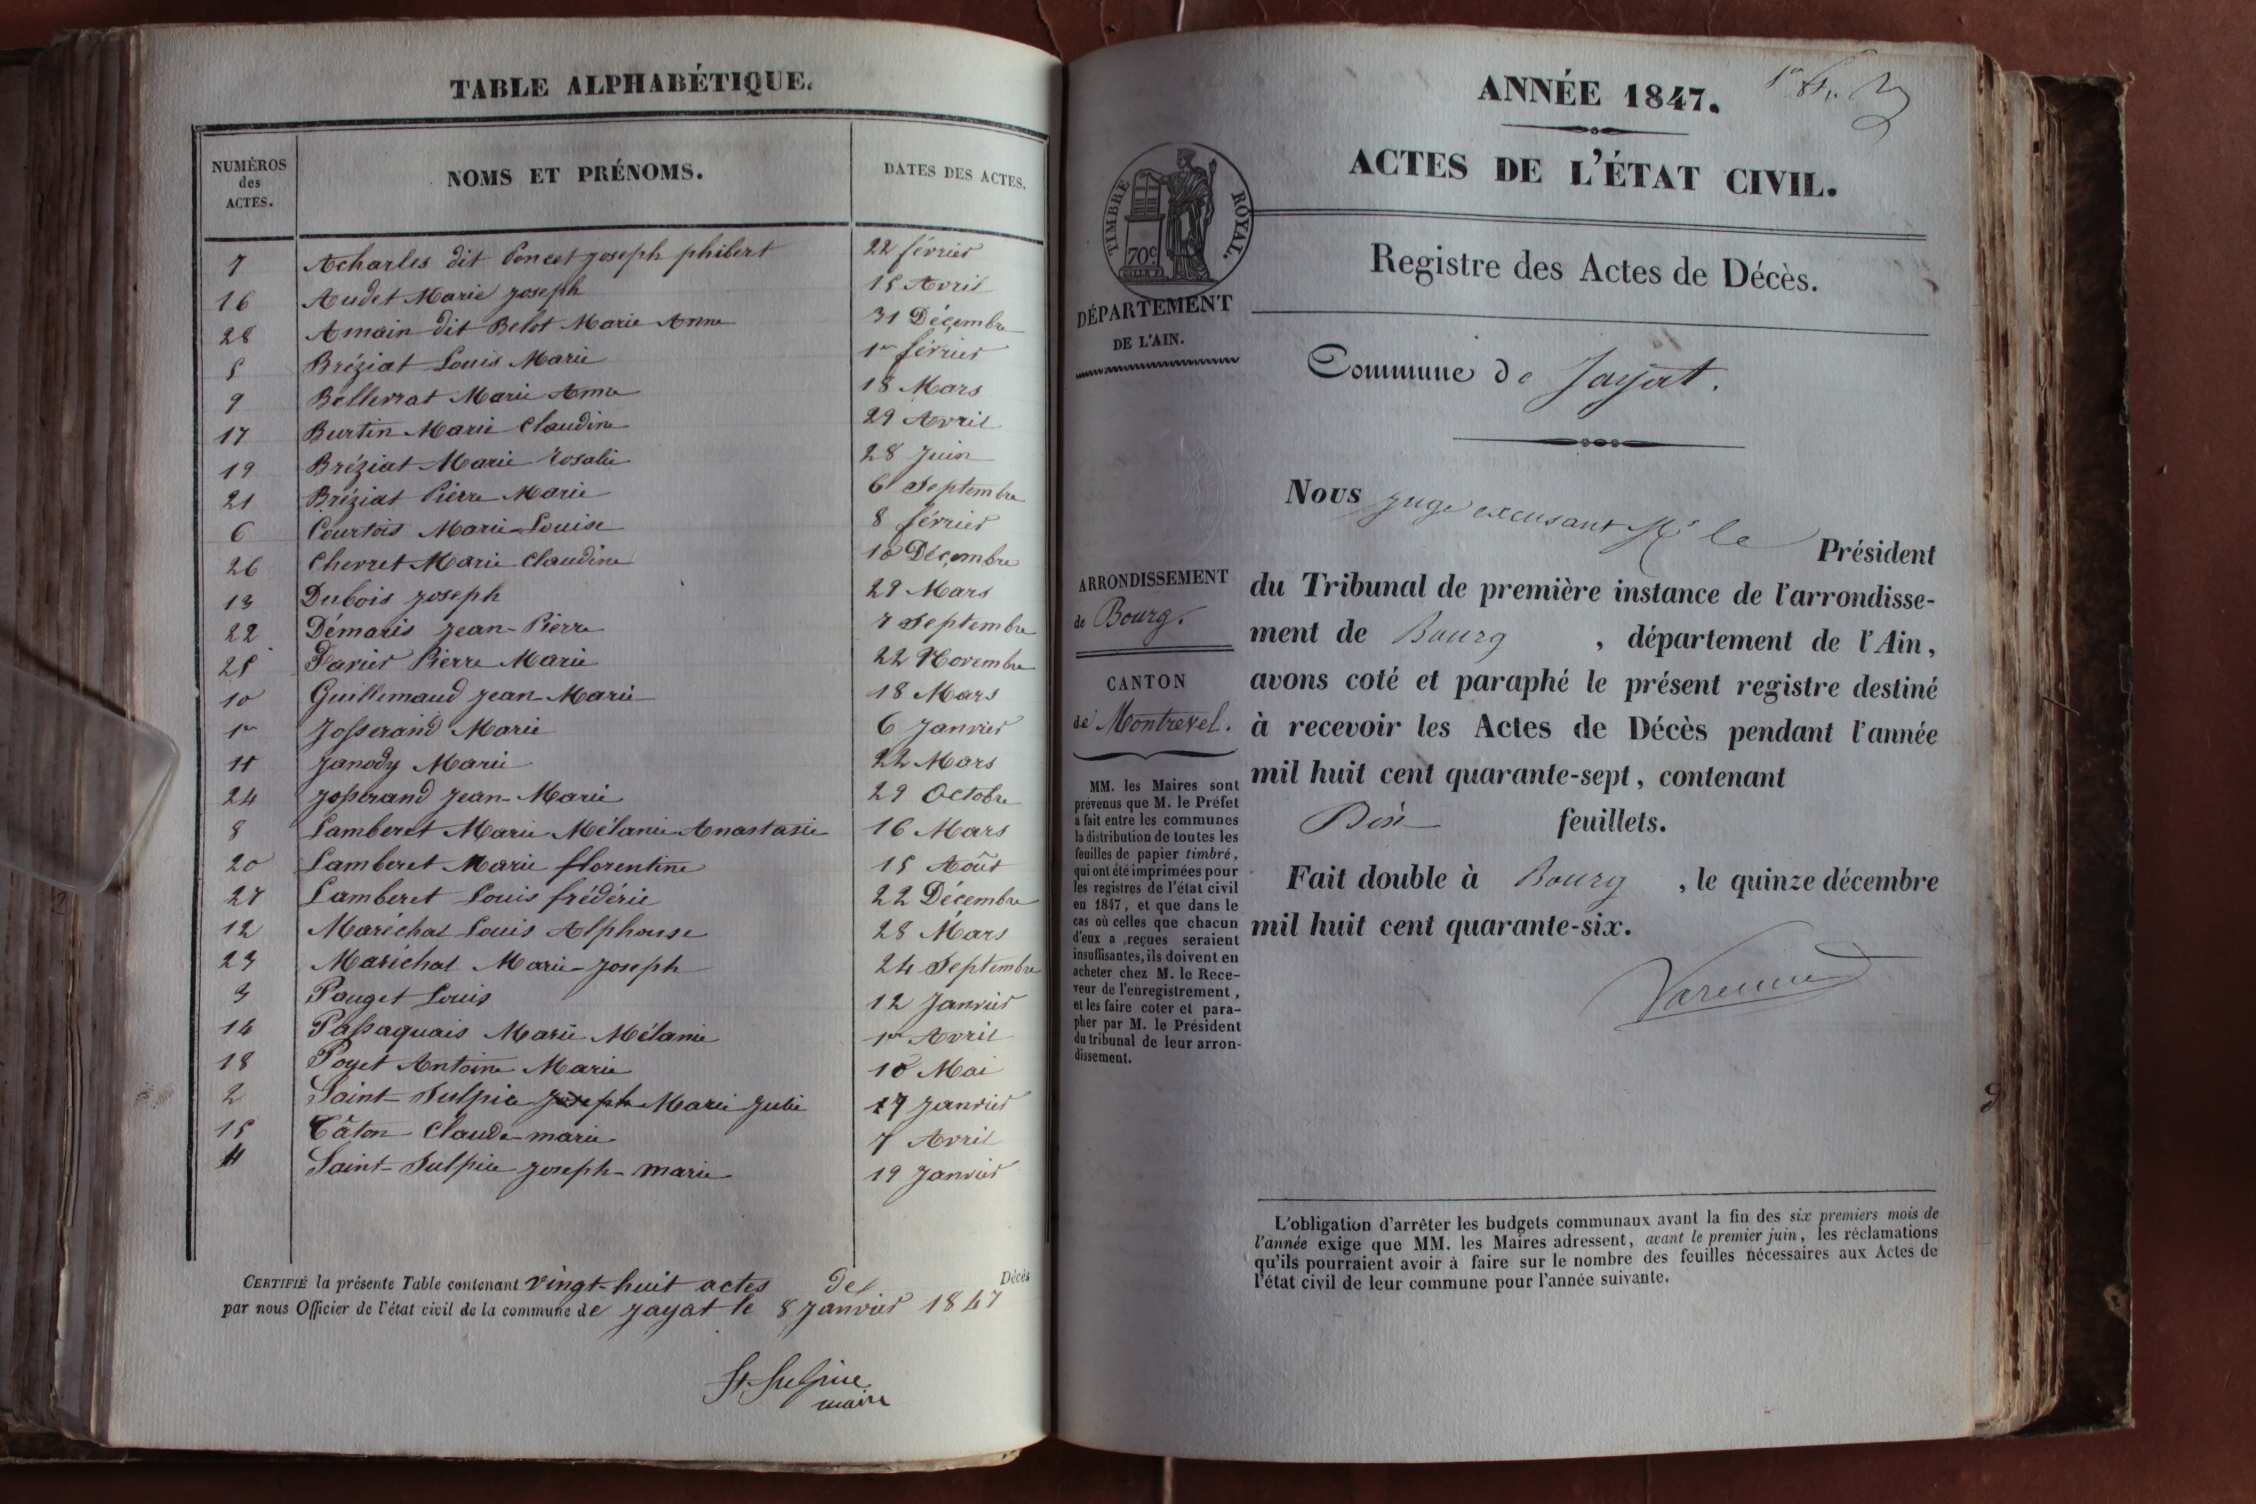 TABLE ALPHABÉTIQUE.
NUMÉROS
des
ACTES.
NOMS ET PRÉNOMS.
DATES DES ACTES.
7 Acharles dit Poncet joseph philibert 22 février
16 Audet Marie joseph 15 Avril
28 Amain dit Belot Marie Anne 31 Décembre
5 Bréziat Louis Marie 1er février
9 Bellerrat Marie Anne 18 Mars
17 Burtin Marie Claudine 29 Avril
19 Bréziat Marie rosalie 28 Juin
21 Bréziat Pierre Marie 6 Septembre
6 Courtois Marie Louise 8 février
26 Cherret Marie Claudine 10 Décembre
13 Dubois joseph 29 Mars
22 Démaris jean Pierre 7 Septembre
25 Favier Pierre Marie 22 Novembre
10 Guillemaud jean Marie 18 Mars
1er Josserand Marie 6 Janvier
11 Janody Marie 22 Mars
24 josserand jean Marie 29 Octobre
8 Lamberet Marie Mélanie Anastasie 16 Mars
20 Lamberet Marie florentine 15 Août
27 Lamberet Louis frédéric 22 Décembre
12 Maréchal Louis Alphonse 28 Mars
23 Maréchal Marie joseph 24 Septembre
3 Pauget Louis 12 Janvier
14 Passaquais Marie Mélanie 1er Avril
18 Poyet Antoine Marie 10 Mai
2 Saint-Sulpice joseph Marie Julie 17 Janvier
15 Tâton Claude marie 7 Avril
4 Saint-Sulpice joseph marie 19 Janvier
CERTIFIÉ la présente Table contenant vingt-huit actes de Décès
par nous Officier de l'état civil de la commune de jayat le 8 janvier 1847
St Sulpice
maire
ANNÉE 1847.
ACTES DE L'ÉTAT CIVIL.
TIMBRE ROYAL.
70c
Registre des Actes de Décès.
DÉPARTEMENT
DE L'AIN.
Commune de Jayat.
Nous juge excusant Mr le Président
du Tribunal de première instance de l'arrondisse-
ment de Bourg , département de l'Ain,
avons coté et paraphé le présent registre destiné
à recevoir les Actes de Décès pendant l'année
mil huit cent quarante-sept, contenant
Dix feuillets.
Fait double à Bourg , le quinze décembre
mil huit cent quarante-six.
ARRONDISSEMENT
de Bourg.
CANTON
de Montrevel.
MM. les Maires sont
prévenus que M. le Préfet
a fait entre les communes
la distribution de toutes les
feuilles de papier timbré,
qui ont été imprimées pour
les registres de l'état civil
en 1847, et que dans le
cas où celles que chacun
d'eux a reçues seraient
insuffisantes, ils doivent en
acheter chez M. le Rece-
veur de l'enregistrement,
et les faire coter et para-
pher par M. le Président
du tribunal de leur arron-
dissement.
L'obligation d'arrêter les budgets communaux avant la fin des six premiers mois de
l'année exige que MM. les Maires adressent, avant le premier juin, les réclamations
qu'ils pourraient avoir à faire sur le nombre des feuilles nécessaires aux Actes de
l'état civil de leur commune pour l'année suivante.